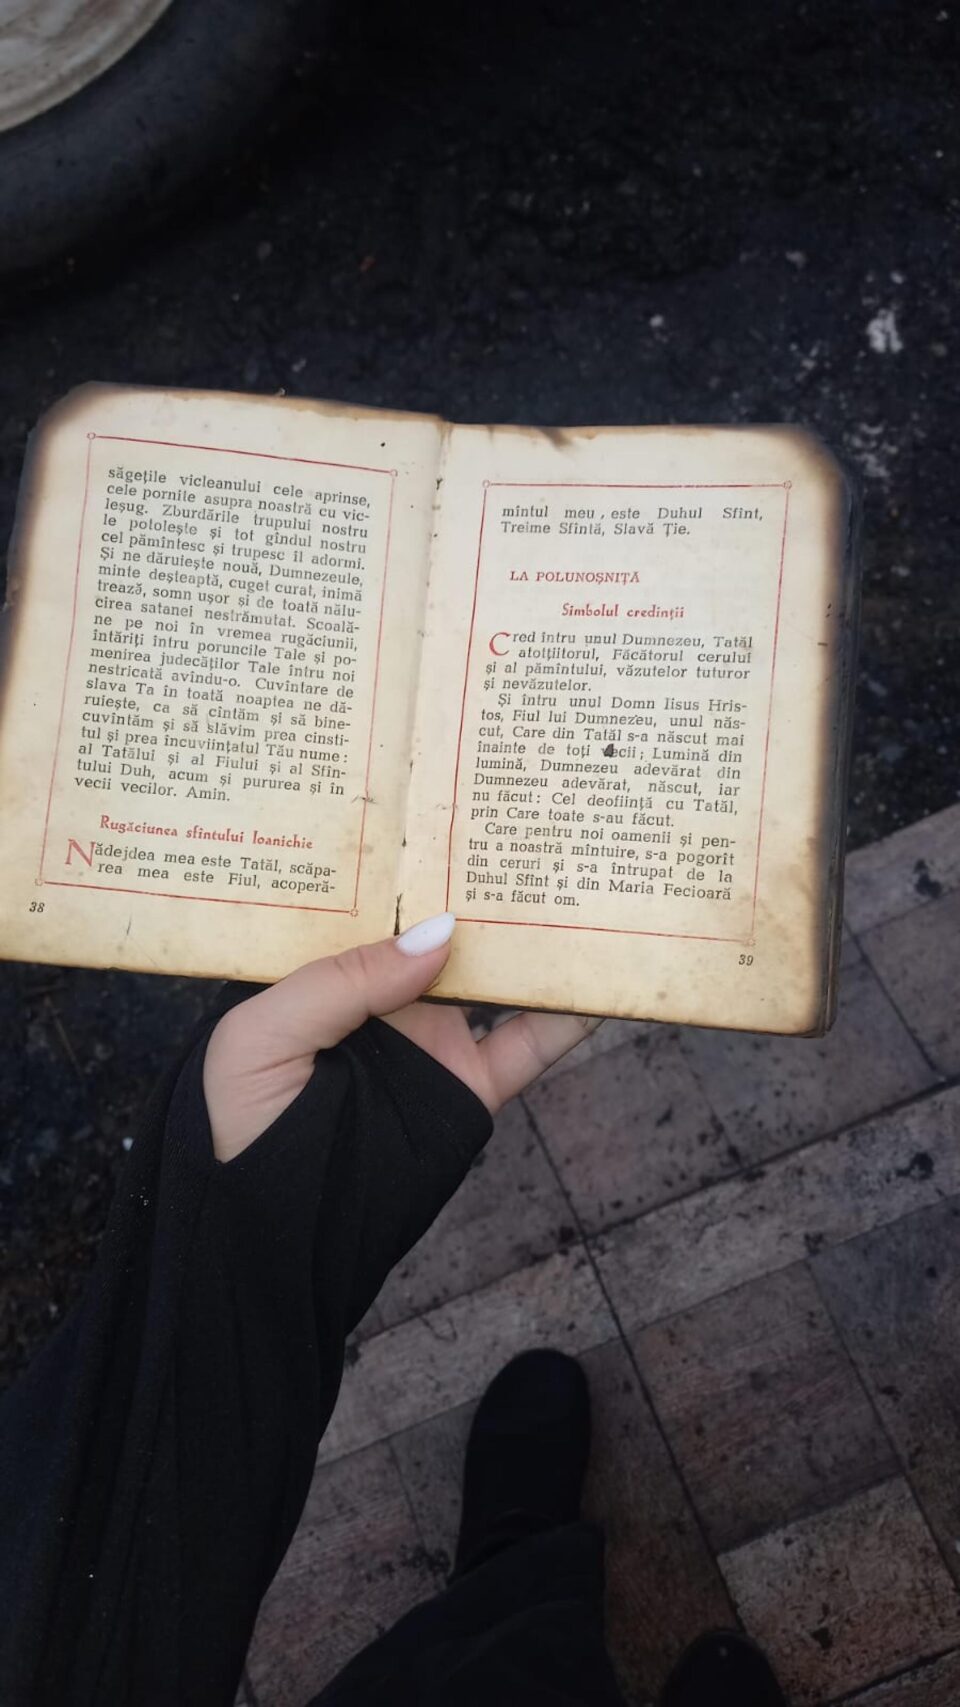 săgețile vicleanului cele aprinse,
cele pornite asupra noastră cu vic-
leșug. Zburdările trupului nostru
le potolește și tot gîndul nostru
cel pămîntesc și trupesc îl adormi.
Și ne dăruiește nouă, Dumnezeule,
minte deșteaptă, cuget curat, inimă
trează, somn ușor și de toată nălu-
cirea satanei nestrămutat. Scoală-
ne pe noi în vremea rugăciunii,
întăriți întru poruncile Tale și po-
menirea judecăților Tale întru noi
nestricată avîndu-o. Cuvîntare de
slava Ta în toată noaptea ne dă-
ruiește, ca să cîntăm și să bine-
cuvîntăm și să slăvim prea cinsti-
tul și prea încuviințatul Tău nume:
al Tatălui și al Fiului și al Sfîn-
tului Duh, acum și pururea și în
vecii vecilor. Amin.
Rugăciunea sfîntului Ioanichie
Nădejdea mea este Tatăl, scăpa-
rea mea este Fiul, acoperă-
38
mîntul meu, este Duhul Sfînt,
Treime Sfîntă, Slavă Ție.
LA POLUNOȘNIȚĂ
Simbolul credinții
Cred întru unul Dumnezeu, Tatăl
atotțiitorul, Făcătorul cerului
și al pămîntului, văzutelor tuturor
și nevăzutelor.
Și întru unul Domn Iisus Hris-
tos, Fiul lui Dumnezeu, unul năs-
cut, Care din Tatăl s-a născut mai
înainte de toți vecii; Lumină din
lumină, Dumnezeu adevărat din
Dumnezeu adevărat, născut, iar
nu făcut: Cel deoființă cu Tatăl,
prin Care toate s-au făcut.
Care pentru noi oamenii și pen-
tru a noastră mîntuire, s-a pogorît
din ceruri și s-a întrupat de la
Duhul Sfînt și din Maria Fecioară
și s-a făcut om.
39